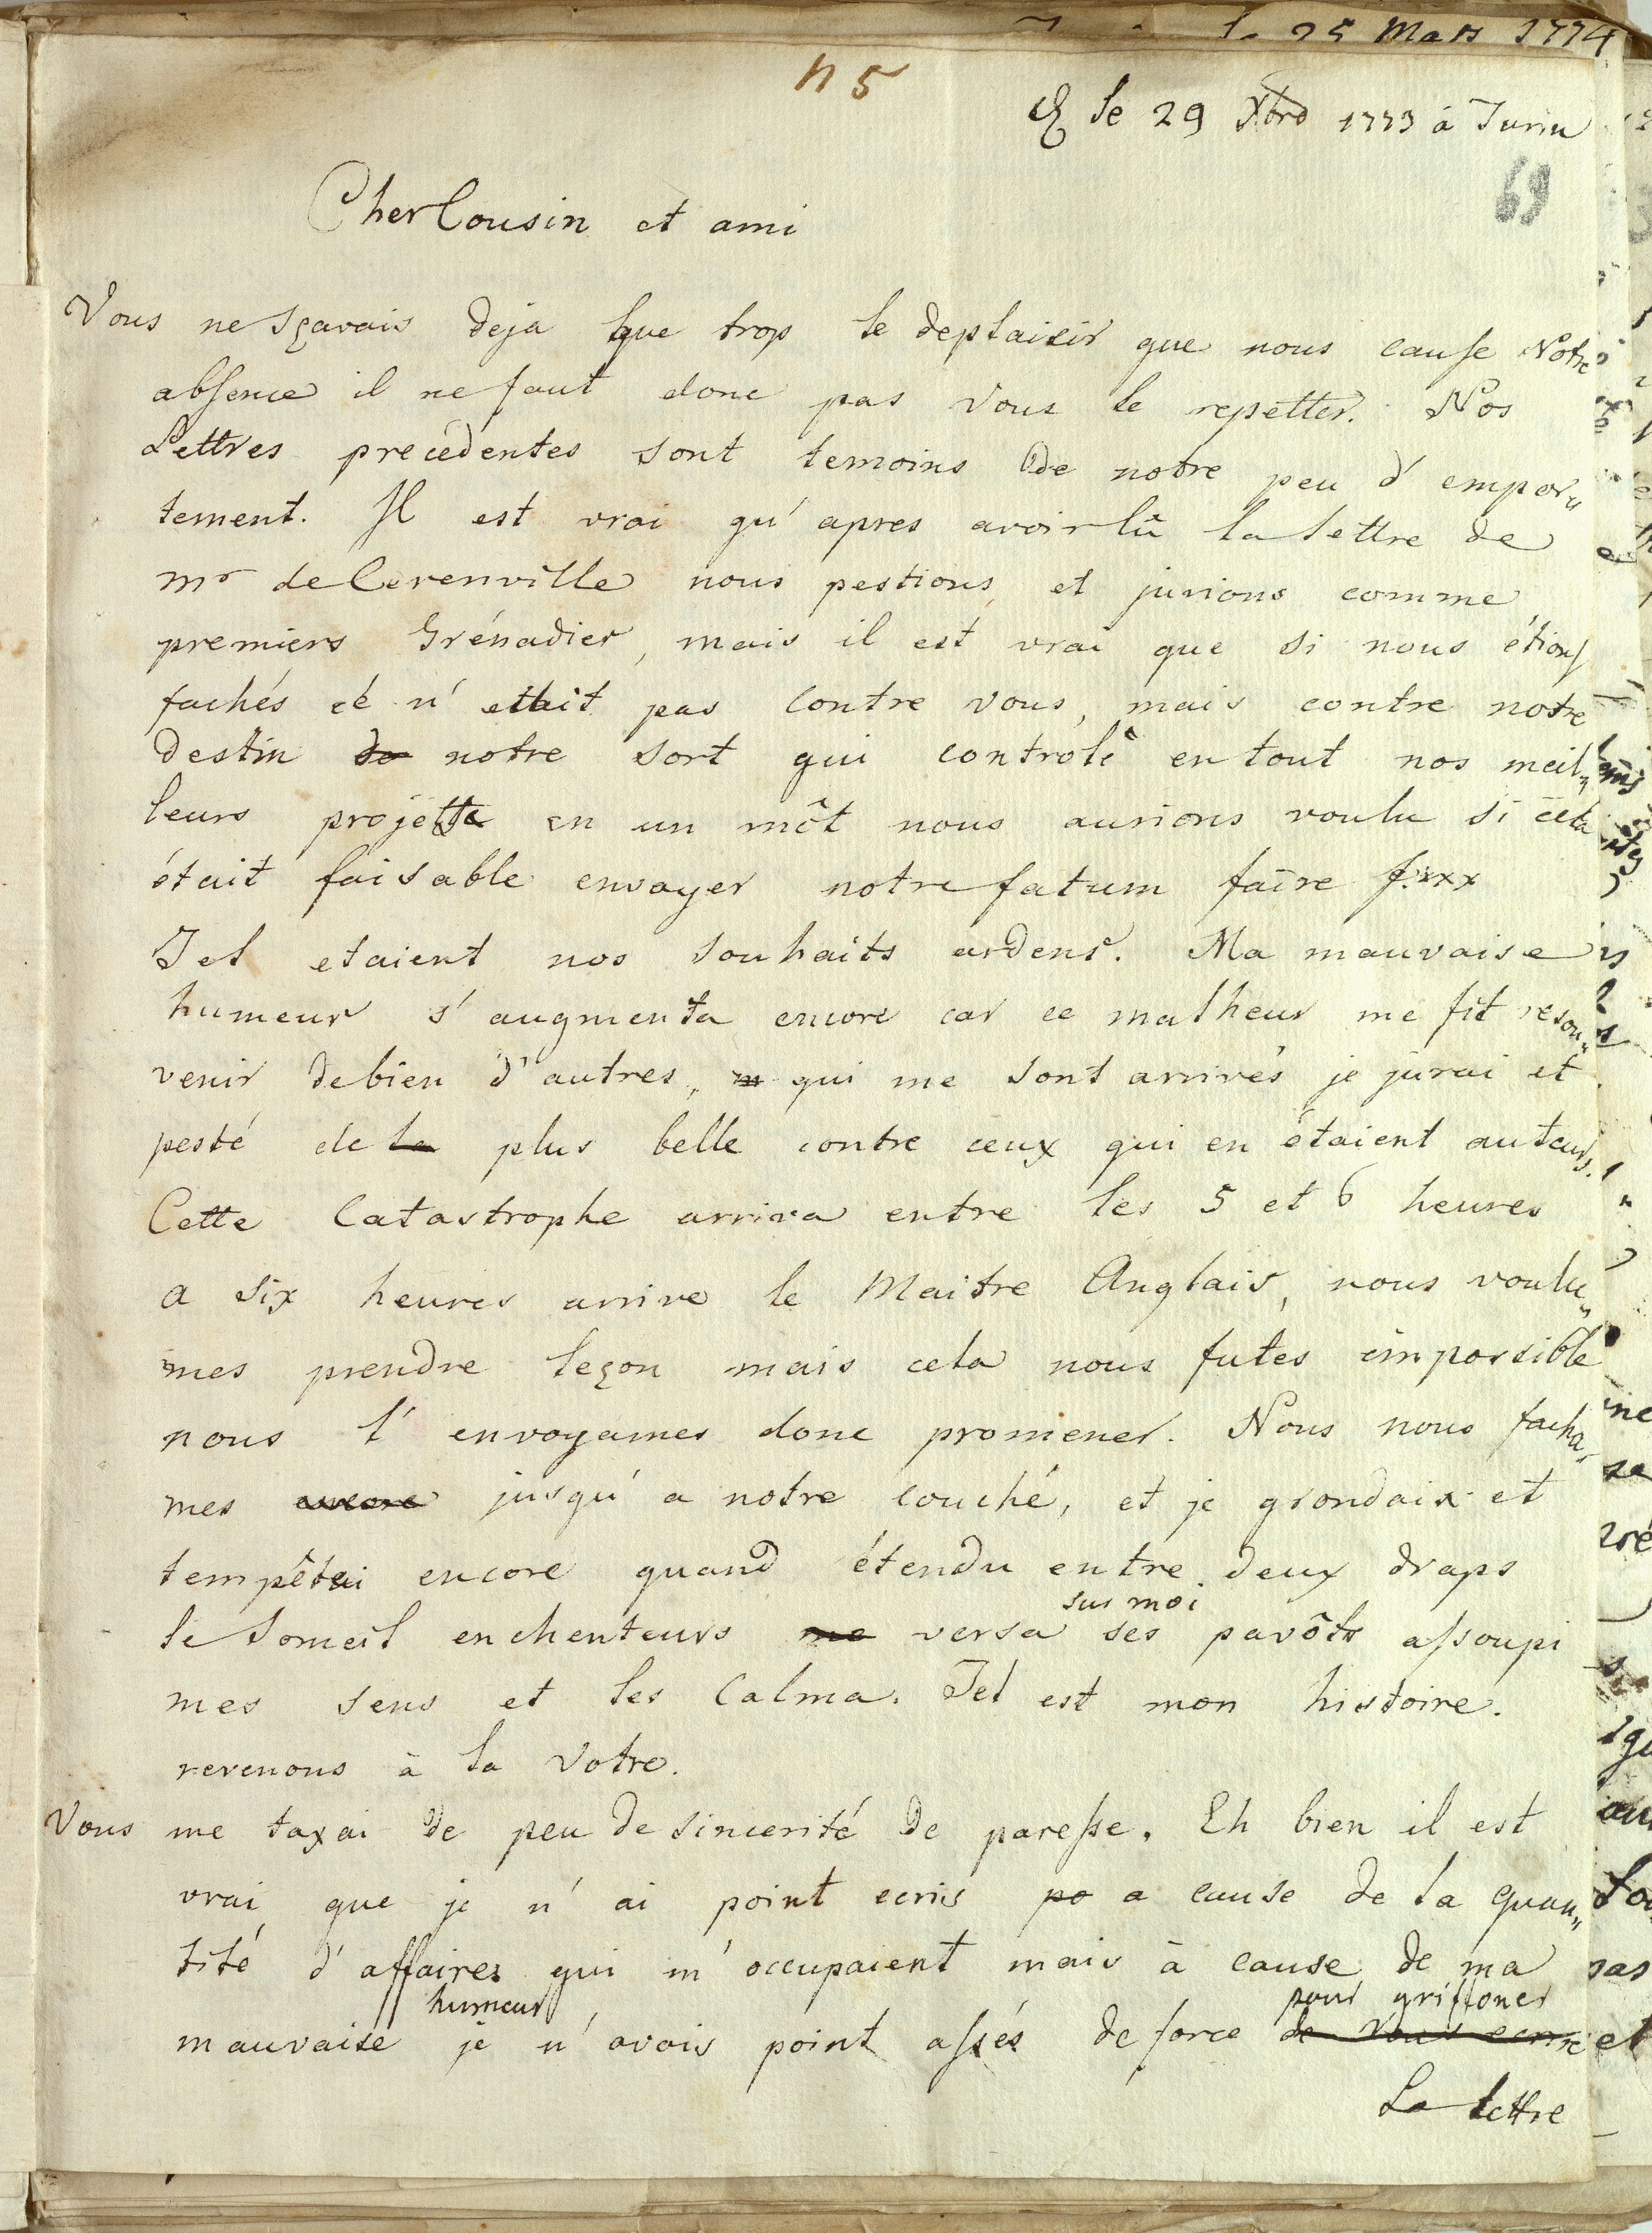 25 Mars 1774
n 5
le 29 Xbre 1773 à Turin
69
Cher Cousin et ami
Vous ne sçavais deja que trop le deplaisir que nous cause Votre
absence il ne faut donc pas vous le repetter. Nos
Lettres precédentes sont temoins de notre peu d'empor„
tement. Il est vrai qu'apres avoir lû la lettre de
Mr de Cerenville nous pestions et jurions comme
premiers Grénadier, mais il est vrai que si nous étions
fachés cé n'ettait pas contre vous, mais contre notre
destin de notre sort qui controlê en tout nos meil„
leurs projette en un môt nous aurions voulu si cela
était faisable envoyer notre fatum faire f.xxx
Tel etaient nos souhaits ardens. Ma mauvaise
humeur s'augmenta encore car ce malheur me fit resou„
venir de bien d'autres, qui me sont arrivés je jurai et
pesté de la plus belle contre ceux qui en étaient auteurs.
Cette Catastrophe arriva entre les 5 et 6 heures
a six heures arrive le Maitre Anglais, nous voulu„
mes prendre leçon mais cela nous futes impossible
nous l'envoyames donc promener. Nous nous facha„
mes encore jusqu'a notre couché, et je grondais et
tempêtai encore quand étendu entre deux draps
sur moi
le someil enchenteurs me versa ses pavôts assoupi
mes sens et les Calma. Tel est mon histoire.
revenons à la Votre.
Vous me taxai de peu de sincerité de paresse. Eh bien il est
vrai que je n'ai point ecris po a cause de la quan„
tité d'affaires qui m'occupaient mais à cause de ma
humeur pour griffoner
mauvaise je n'avois point assés de force de vous ecrire
La lettre